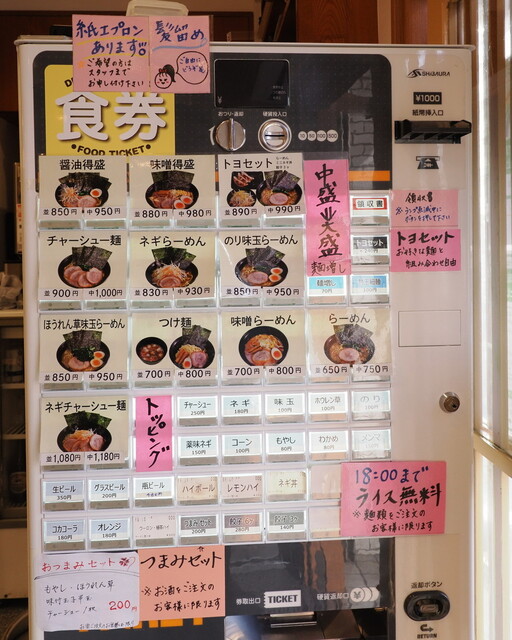 紙エプロン
あります!!
ご希望の方は
スタッフまで
お申し付け下さい!
髪ゴム
留め
ご自由に
どうぞ
食券
FOOD TICKET
SHIMURA
¥1000
紙幣挿入口
おつり・返却
硬貨投入口
10 50 100 500
醤油得盛
並850円 中950円
味噌得盛
並880円 中980円
トヨセット
並890円 中990円
中盛
大盛
麺増し
領収書
トヨセット
麺増し
領収書
トヨセット
お好きな麺と
組み合わせ自由
チャーシュー麺
並900円 中1,000円
ネギらーめん
並830円 中930円
のり味玉らーめん
並850円 中950円
ほうれん草味玉らーめん
並850円 中950円
つけ麺
並700円 中800円
味噌らーめん
並700円 中800円
らーめん
並650円 中750円
ネギチャーシュー麺
並1,080円 中1,180円
トッピング
チャーシュー
250円
ネギ
180円
味玉
100円
ホウレン草
100円
のり
薬味ネギ
150円
コーン
100円
もやし
80円
わかめ
80円
メンマ
生ビール
350円
グラスビール
200円
瓶ビール
ハイボール
レモンハイ
ネギ丼
コカコーラ
180円
オレンジ
180円
つまみセット
餃子
280円
餃子
140円
18:00まで
ライス無料
※麺類をご注文の
お客様に限ります
おつまみセット
もやし・ほうれん草
チャーシュー1枚
200円
つまみゼット
※お酒をご注文の
お客様に限ります
券取出口
TICKET
硬貨返却口
返却ボタン
RETURN